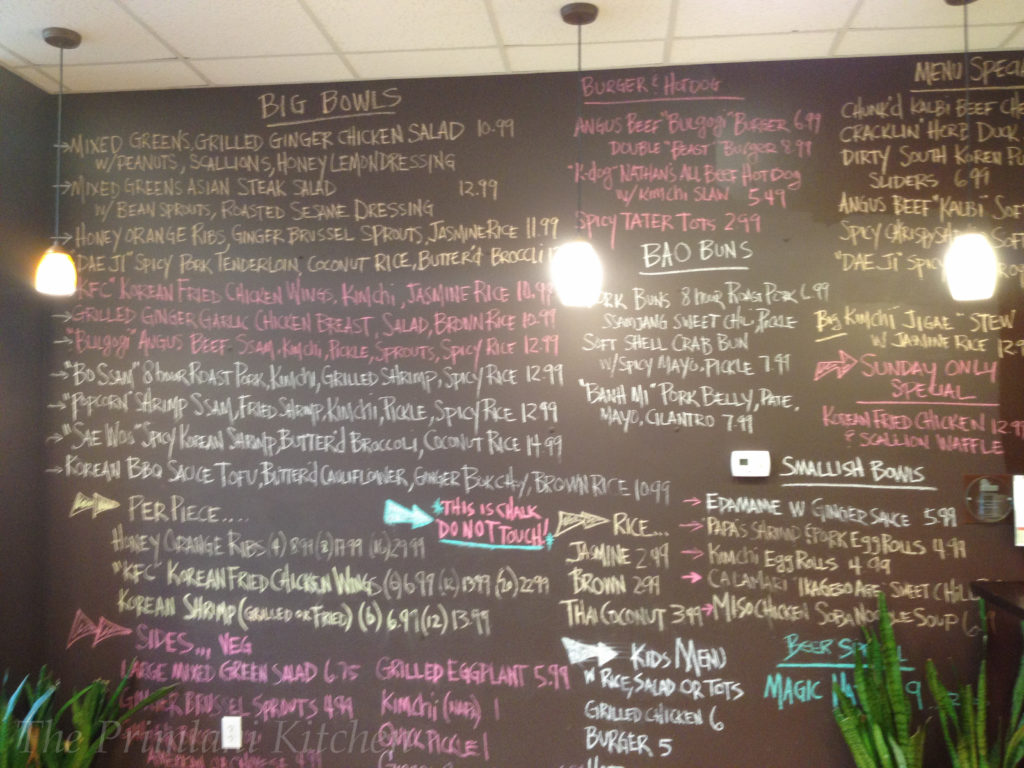 BIG BOWLS
MIXED GREENS, GRILLED GINGER CHICKEN SALAD 10.99
W/PEANUTS, SCALLIONS, HONEY LEMON DRESSING
MIXED GREENS ASIAN STEAK SALAD 12.99
W/ BEAN SPROUTS, ROASTED SESAME DRESSING
HONEY ORANGE RIBS, GINGER BRUSSEL SPROUTS, JASMINE RICE 11.99
"DAE JI" SPICY PORK TENDERLOIN, COCONUT RICE, BUTTER'D BROCCLI
"KFC" KOREAN FRIED CHICKEN WINGS, KIMCHI, JASMINE RICE 10.99
GRILLED GINGER GARLIC CHICKEN BREAST, SALAD, BROWN RICE 10.99
"BULGOGI" ANGUS BEEF SSAM, KIMCHI, PICKLE, SPROUTS, SPICY RICE 12.99
"BO SSAM" 8 HOUR ROAST PORK, KIMCHI, GRILLED SHRIMP, SPICY RICE 12.99
"POPCORN" SHRIMP SSAM, FRIED SHRIMP, KIMCHI, PICKLE, SPICY RICE 12.99
"SAE WOO" SPICY KOREAN SHRIMP, BUTTER'D BROCCOLI, COCONUT RICE 14.99
KOREAN BBQ SAUCE TOFU, BUTTER'D CAULIFLOWER, GINGER BOK CHOY, BROWN RICE 10.99
PER PIECE....
HONEY ORANGE RIBS (4) 8.99 (8) 17.99 (16) 29.99
"KFC" KOREAN FRIED CHICKEN WINGS (6) 6.97 (12) 13.99 (20) 22.99
KOREAN SHRIMP (GRILLED OR FRIED) (6) 6.97 (12) 13.99
*THIS IS CHALK
DO NOT TOUCH!*
SIDES... VEG
LARGE MIXED GREEN SALAD 6.75
GINGER BRUSSEL SPROUTS 4.99
GRILLED EGGPLANT 5.99
KIMCHI 1
QUICK PICKLE 1
BURGER & HOTDOG
ANGUS BEEF "BULGOGI" BURGER 6.99
DOUBLE "BEAST" BURGER 8.99
"K-DOG" NATHAN'S ALL BEEF HOT DOG
W/ KIMCHI SLAW 5.49
SPICY TATER TOTS 2.99
BAO BUNS
PORK BUNS 8 HOUR ROAST PORK 6.99
SSAMJANG SWEET CHILI, PICKLE
SOFT SHELL CRAB BUN
W/SPICY MAYO, PICKLE 7.99
"BANH MI" PORK BELLY, PATE,
MAYO, CILANTRO 7.99
RICE...
JASMINE 2.99
BROWN 2.99
THAI COCONUT 3.99
KIDS MENU
W RICE, SALAD OR TOTS
GRILLED CHICKEN 6
BURGER 5
MENU SPECIA
CHUNK'D KALBI BEEF CHE
CRACKLIN' HERB DUCK
DIRTY SOUTH KOREN PU
SLIDERS 6.99
ANGUS BEEF "KALBI" SOF
SPICY CRISPY SH SOFT
"DAE JI" SPIC
BIG KIMCHI JIGAE - STEW
W/ JASMINE RICE 12.9
SUNDAY ONLY
SPECIAL
KOREAN FRIED CHICKEN 12.9
& SCALLION WAFFLE
SMALLISH BOWLS
EDAMAME W GINGER SAUCE 5.99
PAPA'S SHRIMP & PORK EGG ROLLS 4.99
KIMCHI EGG ROLLS 4.99
CALAMARI "IKAGESO AGE" SWEET CHILI
MISO CHICKEN SOBA NOODLE SOUP 6
BEER
MAGIC
The Primlani Kitchen